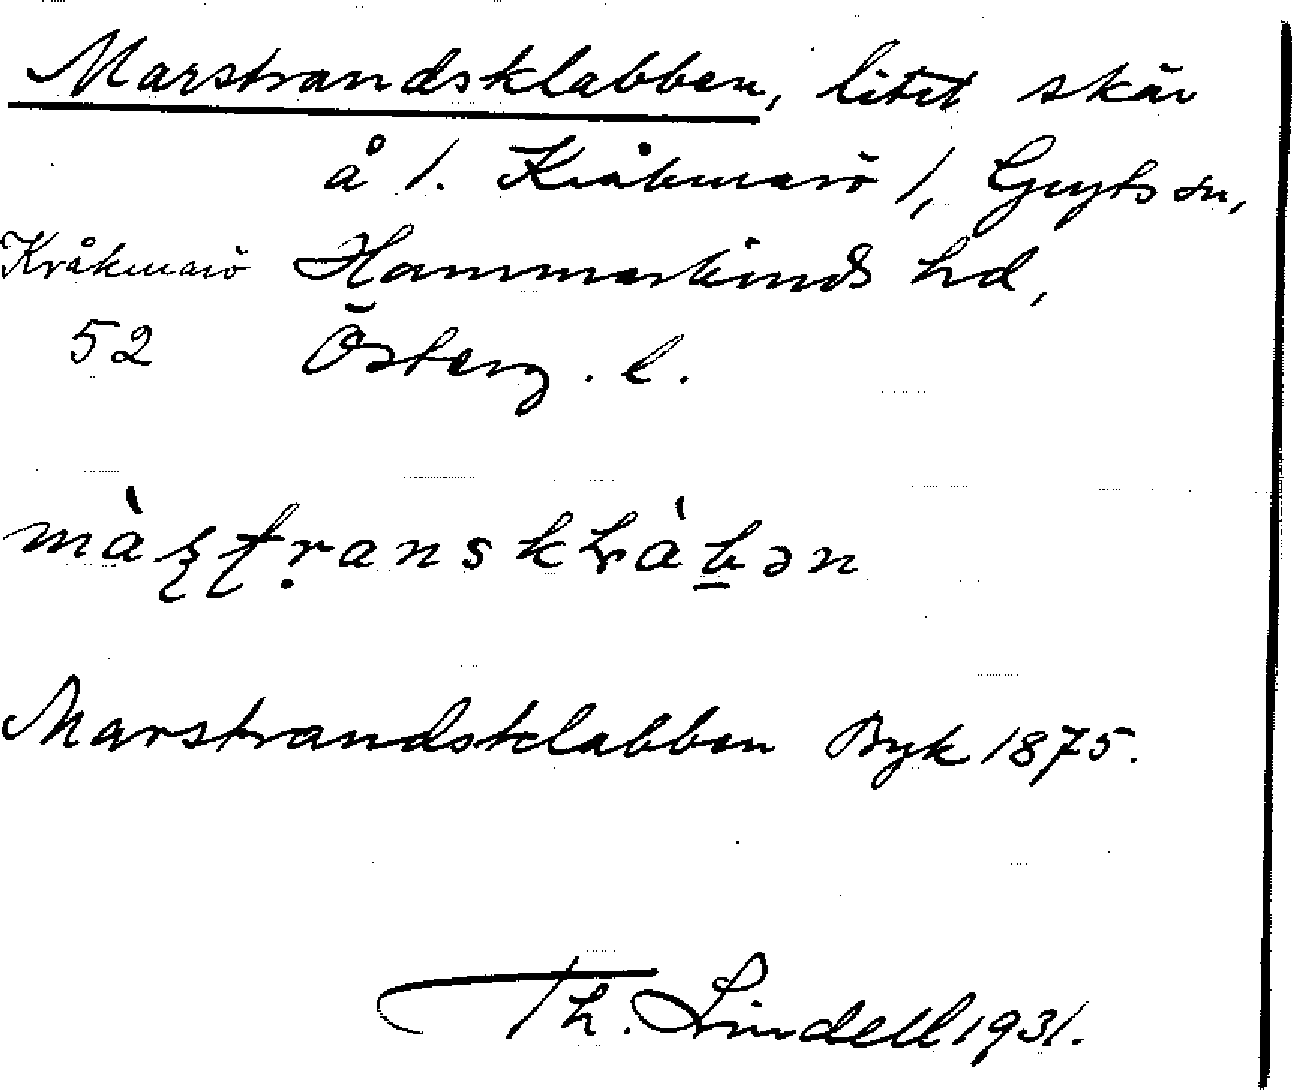 Marstrandsklabben, litet skär
å 1. Kråkmarö 1, Gryts sn,
Kråkmarö Hammarkinds hd,
52 Österg. l.
màʂʈṛanskɽàb̲ən
Marstrandsklabben Byk 1875.
Th. Lindell 1931.